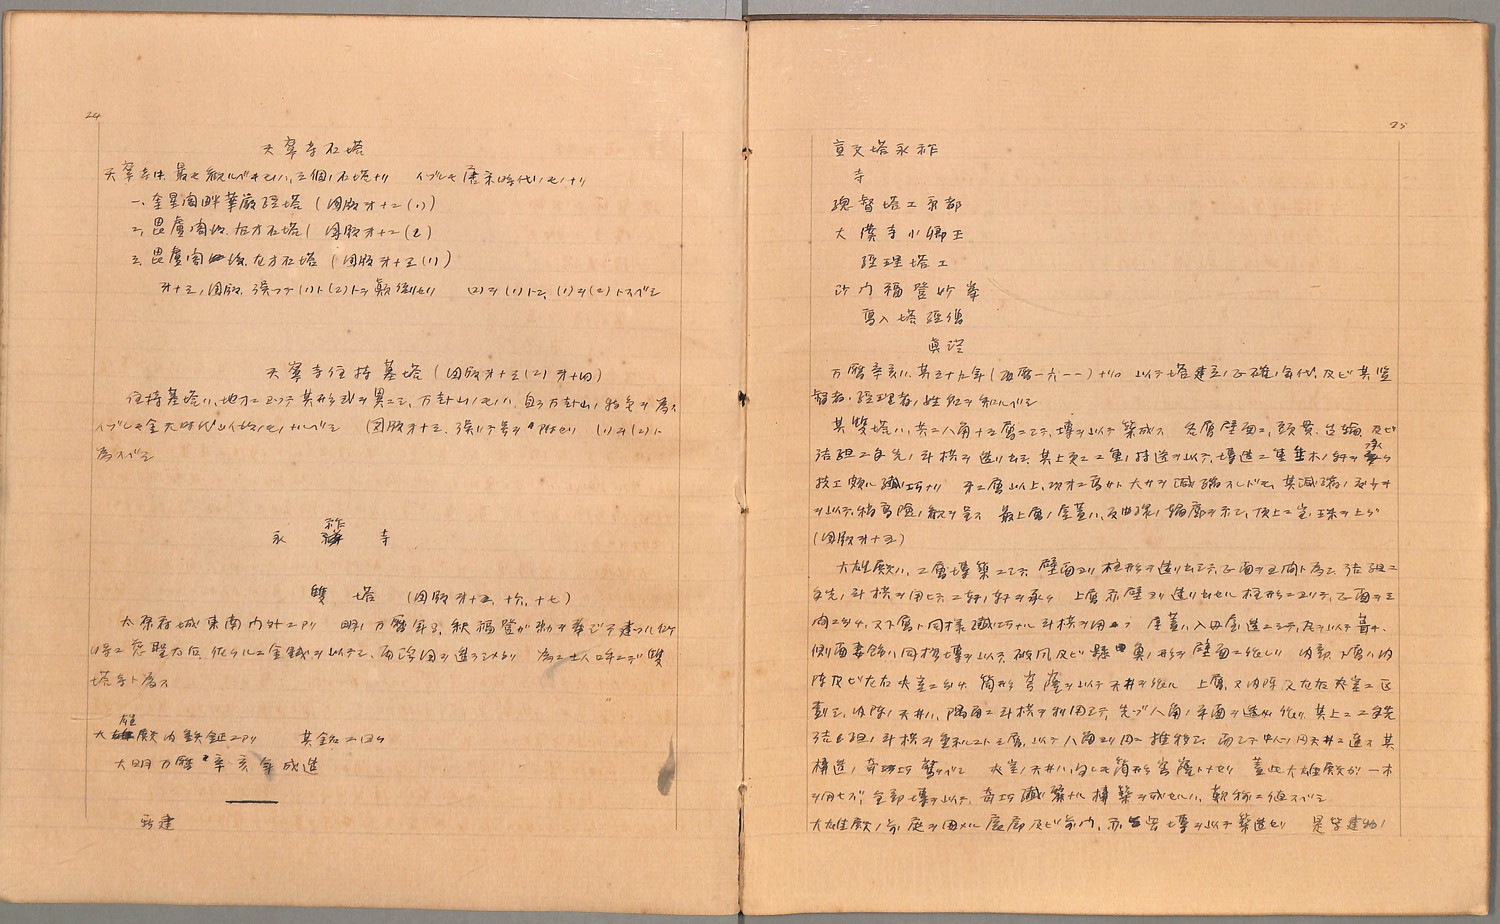 24
天寧寺石塔
天寧寺ニ最モ観ルベキモノハ、三個ノ石塔ナリ　イヅレモ唐末時代ノモノナリ
一、奎星閣畔華厳経塔（図版オ十二(1)）
二、毘盧閣後左方石塔（図版オ十二(2)）
三、毘盧閣後右方石塔（図版オ十三(1)）
オ十三ノ図版誤ツテ(1)ト(2)トヲ顛倒セリ　(2)ヲ(1)トシ、(1)ヲ(2)トスベシ
天寧寺住持墓塔（図版オ十三(2)オ十四）
住持墓塔ハ、地方ニヨツテ其形式ヲ異ニシ、万卦山ノモノハ、自ラ万卦山ノ特色ヲ為ス
イヅレモ金元時代以後ノモノナルベシ　（図版オ十三、誤リテ号ヲ附セリ　(1)ヲ(2)ト
為スベシ
永祚寺
雙塔　（図版オ十五、十六、十七）
太原府城東南内外ニアリ　明ノ万暦年間、釈福登が勅ヲ奉ジテ建ツル所
時ニ慈聖太后、佐クルニ金銭ヲ以テシ、両浮図ヲ造ラシメタリ　為ニ土人呼ンデ雙
塔寺ト為ス
大雄殿内鉄鉦ニアリ　其銘ニ曰ク
大明万暦辛亥年成造
新建
25
宣文塔永祚
寺
総督塔工京都
大漢寺小卿王
経理塔工
沙門福登妙峯
寫入塔経僧
真澄
万暦辛亥ハ、其三十九年（西暦一六一一）ナリ　以テ塔建立ノ正確ノ年代、及ビ其監
督者、経理者ノ姓名ヲ知ルベシ
其雙塔ハ、共ニ八角十三層ニシテ、塼ヲ以テ築成ス　各層壁面ニ、頭貫、台輪、及ビ
詰組ニ手先ノ斗栱ヲ造リ出シ、其上更ニ二重ノ持送ヲ以テ、塼造ニ重垂木ノ軒ヲ承ク
技工頗ル繊巧ナリ　オ二層以上、次オニ高サト大サヲ減縮スレドモ、其減縮ノ少キ
ヲ以テ、稍高険ノ観ヲ呈ス　最上層ノ屋蓋ハ、反曲強ノ輪廓ヲ示シ、頂上ニ宝珠ヲ上グ
（図版オ十五）
大雄殿ハ、二層塼築ニシテ、壁面ヨリ柱形ヲ造リ出シテ、正面ヲ五間ト為シ、詰組ニ
手先ノ斗栱ヲ用ヒテ二軒ノ軒ヲ承ク　上層亦壁ヨリ造リ出セル柱形ニヨリテ、正面ヲ三
間ニ分チ、又下層ト同様繊巧ナル斗栱ヲ用ヰ　屋蓋ハ入母屋造ニシテ、瓦ヲ以テ葺キ、
側面妻飾ハ同様塼ヲ以テ、破風及ビ懸魚ノ形ヲ壁面ニ作レリ　内部下層ハ内
陣及ビ左右夾室ニ分チ、筒形穹窿ヲ以テ天井ヲ作ル　上層ハ又内陣及左右夾室ニ区
劃シ、内陣ノ天井ハ、隅角ニ斗栱ヲ利用シテ、先ヅ八角ノ平面ヲ造リ作リ、其上ニ二手先
詰組ノ斗栱ヲ重ヌルコト三層、以テ八角ヨリ円ニ推移シ、而シテ中心ノ円天井ニ達ス　其
構造ノ奇巧驚クベシ　夾室ノ天井ハ、何レモ筒形穹窿トナセリ　蓋此大雄殿が一木
ヲ用ヒズ、全部塼ヲ以テ、奇巧繊麗ナル構築ヲ成セルハ、歎称ニ値スベシ
大雄殿ノ前、庭ヲ囲メル廊廡及ビ前門、亦皆塼ヲ以テ築造セリ　是等建物ノ